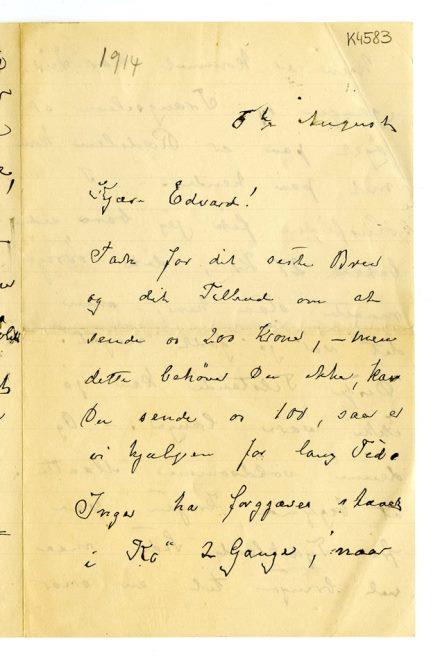 K4583
1914
5te August
Kjære Edvard!
Tak for dit siste Brev
og dit Tilbud om at
sende os 200 Kroner, – men
dette behøver Du ikke, kan
Du sende os 100, saa er
vi hjulpen for lang Tid.
Inger har forgjæves staaet
i "Kø" 2 Gange, naar